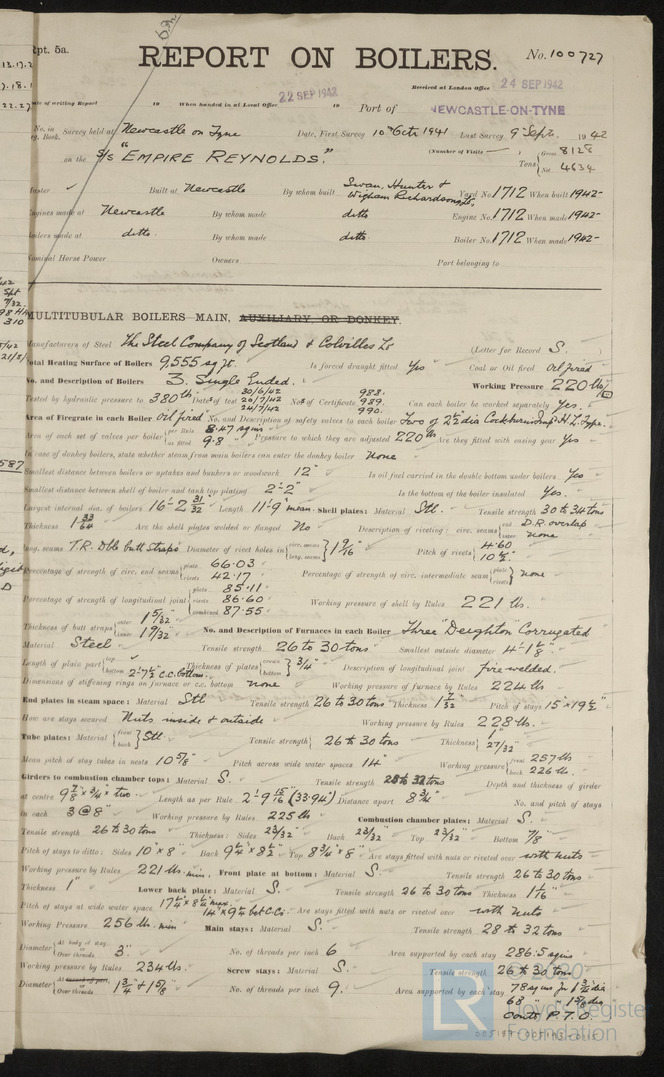 Rpt. 5a.
REPORT ON BOILERS.
No. 100727
Received at London Office 24 SEP 1942
Date of writing Report 19 When handed in at Local Office 22 SEP 1942 19 Port of NEWCASTLE-ON-TYNE
No. in Reg. Book. Survey held at Newcastle on Tyne Date, First Survey 10th Octr 1941 Last Survey 9th Septr. 1942
on the S/s "EMPIRE REYNOLDS." (Number of Visits ) Tons { Gross 8128 Net 4634
Master Built at Newcastle By whom built Swan, Hunter & Wigham Richardson Ltd. Yard No. 1712 When built 1942
Engines made at Newcastle By whom made ditto Engine No. 1712 When made 1942
Boilers made at ditto. By whom made ditto. Boiler No. 1712 When made 1942
Nominal Horse Power Owners Port belonging to
MULTITUBULAR BOILERS MAIN, AUXILIARY, OR DONKEY.
Manufacturers of Steel The Steel Company of Scotland & Colvilles Ld (Letter for Record S.)
Total Heating Surface of Boilers 9,555 sq ft. Is forced draught fitted Yes Coal or Oil fired Oil fired
No. and Description of Boilers 3. Single Ended. Working Pressure 220 lbs/□"
Tested by hydraulic pressure to 380 lbs Date of test 30/6/42 20/7/42 24/7/42 No. of Certificate 988. 989. 990. Can each boiler be worked separately Yes
Area of Firegrate in each Boiler Oil fired No. and Description of safety valves to each boiler Two of 2½" dia Cockburns Imp. H.L. Type.
Area of each set of valves per boiler { per Rule 8.47 sq ins as fitted 9.8 " Pressure to which they are adjusted 220 lbs Are they fitted with easing gear Yes
In case of donkey boilers, state whether steam from main boilers can enter the donkey boiler None
Smallest distance between boilers or uptakes and bunkers or woodwork 12" Is oil fuel carried in the double bottom under boilers Yes
Smallest distance between shell of boiler and tank top plating 2'-2" Is the bottom of the boiler insulated Yes.
Largest internal dia. of boilers 16'-2 31/32" Length 11'-9" mean. Shell plates: Material Stl. Tensile strength 30 to 34 tons
Thickness 1 33/64" Are the shell plates welded or flanged No Description of riveting: circ. seams { end D.R. overlap inter none
long. seams T.R. Dble butt straps Diameter of rivet holes in { circ. seams long. seams } 1 9/16" Pitch of rivets { 4.60 10½"
Percentage of strength of circ. end seams { plate 66.03 rivets 42.17 Percentage of strength of circ. intermediate seam { plate rivets } none
Percentage of strength of longitudinal joint { plate 85.11 rivets 86.60 combined 87.55 Working pressure of shell by Rules 221 lbs.
Thickness of butt straps { outer 1 5/32" inner 1 9/32" No. and Description of Furnaces in each Boiler Three "Deighton" Corrugated
Material Steel Tensile strength 26 to 30 tons Smallest outside diameter 4'-1⅛"
Length of plain part { top bottom 2'-7½" c.c. bottom. Thickness of plates { crown bottom } ¾" Description of longitudinal joint fire welded.
Dimensions of stiffening rings on furnace or c.c. bottom none Working pressure of furnace by Rules 224 lbs
End plates in steam space: Material Stl Tensile strength 26 to 30 tons Thickness 1 7/32" Pitch of stays 15" x 19½"
How are stays secured Nuts inside & outside Working pressure by Rules 228 lbs.
Tube plates: Material { front back } Stl. Tensile strength { 26 to 30 tons Thickness { 1" 27/32"
Mean pitch of stay tubes in nests 10⅝" Pitch across wide water spaces 14" Working pressure { front 257 lbs back 226 lbs.
Girders to combustion chamber tops: Material S. Tensile strength 28 to 32 tons Depth and thickness of girder
at centre 9⅞" x ¾" x two Length as per Rule 2'-9 15/16" (33.94") Distance apart 8¾" No. and pitch of stays
in each 3 @ 8" Working pressure by Rules 225 lbs Combustion chamber plates: Material S.
Tensile strength 26 to 30 tons Thickness: Sides 23/32" Back 23/32" Top 23/32" Bottom ⅞"
Pitch of stays to ditto: Sides 10" x 8" Back 9¼" x 8½" Top 8¾" x 8" Are stays fitted with nuts or riveted over with nuts
Working pressure by Rules 221 lbs. min. Front plate at bottom: Material S. Tensile strength 26 to 30 tons
Thickness 1" Lower back plate: Material S. Tensile strength 26 to 30 tons Thickness 1 1/16"
Pitch of stays at wide water space 14" x 9¼" bet C.Cs. Are stays fitted with nuts or riveted over with nuts
Working Pressure 256 lbs. min Main stays: Material S. Tensile strength 28 to 32 tons
Diameter { At body of stay, Over threads 3". No. of threads per inch 6 Area supported by each stay 286.5 sq ins
Working pressure by Rules 234 lbs. Screw stays: Material S. Tensile strength 26 to 30 tons
Diameter { At turned off part, Over threads 1¾" + 1⅝" No. of threads per inch 9. Area supported by each stay 78 sq ins for 1¾" dia
68 " " 1⅝" dia
Contd P.T.O.
LR
Lloyd's Register
Foundation